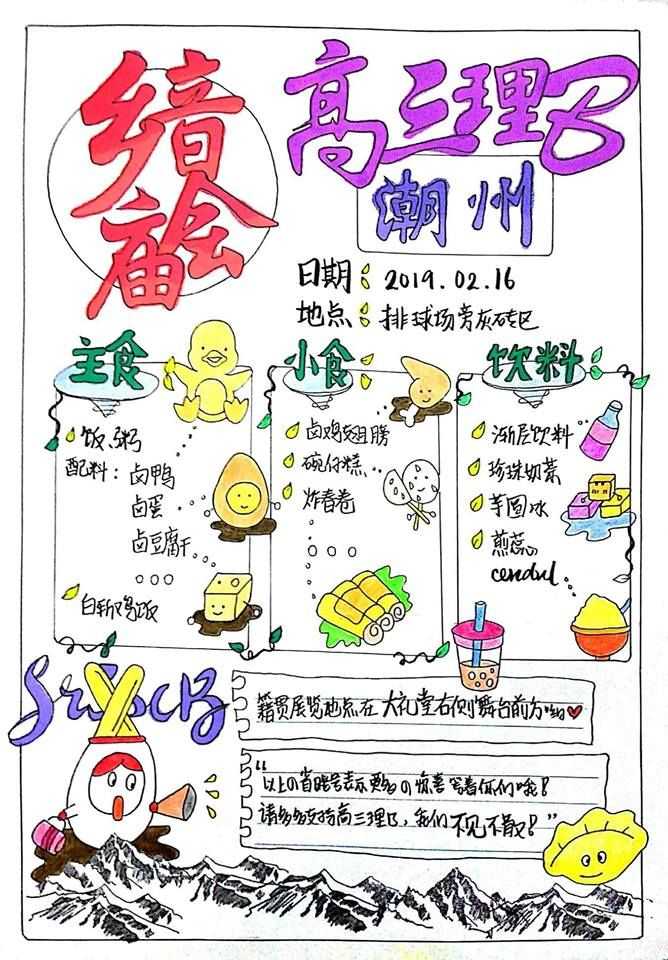 乡音
庙会
高三理B
潮州
日期：2019.02.16
地点：排球场旁灰砖区
主食
饭.粥
配料：卤鸭
卤蛋
卤豆腐干
○○○
白斩鸡饭
小食
卤鸡翅膀
碗仔糕
炸春卷
○○○
饮料
渐层饮料
珍珠奶茶
芋圆冰
煎蕊
cendul
Sr3ScB
籍贯展览地点在大礼堂右侧舞台前方哟
“以上の省略号表示更多の惊喜等着你们哦！
请多多支持高三理B，我们不见不散！”